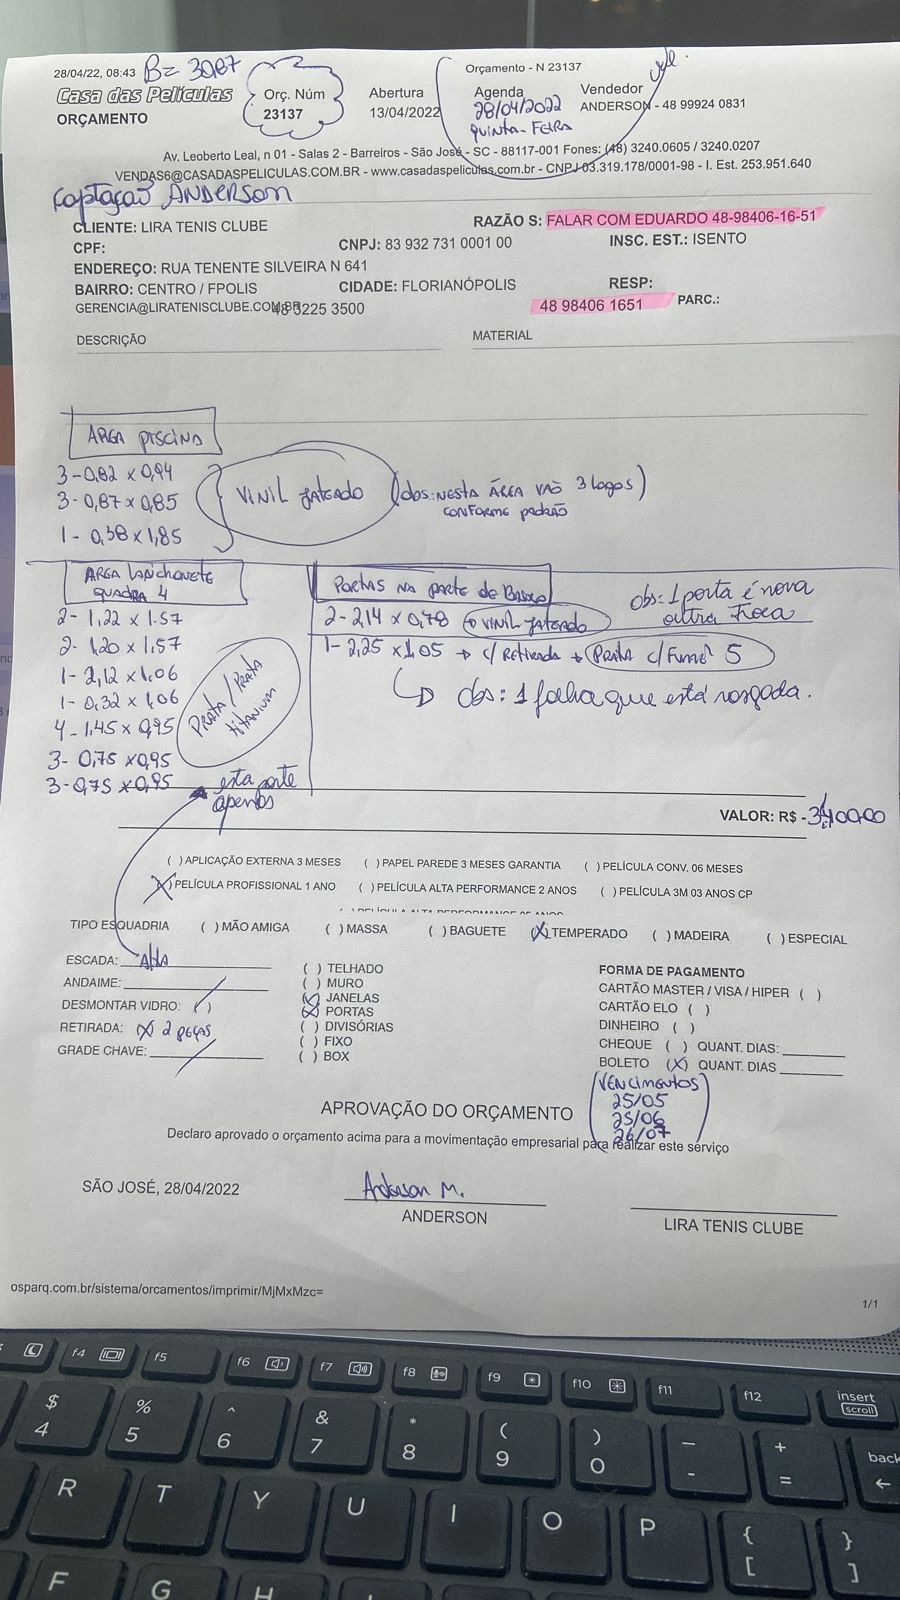 28/04/22, 08:43 B= 3087
Orçamento - N 23137
Casa das Películas
ORÇAMENTO
Orç. Núm
23137
Abertura
13/04/2022
Agenda
28/04/2022
QUINTA-FEIRA
Vendedor
ANDERSON - 48 99924 0831
Av. Leoberto Leal, n 01 - Salas 2 - Barreiros - São José - SC - 88117-001 Fones: (48) 3240.0605 / 3240.0207
VENDAS6@CASADASPELICULAS.COM.BR - www.casadaspeliculas.com.br - CNPJ-03.319.178/0001-98 - I. Est. 253.951.640
Captação ANDERSON
CLIENTE: LIRA TENIS CLUBE
RAZÃO S: FALAR COM EDUARDO 48-98406-16-51
CPF:
CNPJ: 83 932 731 0001 00
INSC. EST.: ISENTO
ENDEREÇO: RUA TENENTE SILVEIRA N 641
BAIRRO: CENTRO / FPOLIS
CIDADE: FLORIANÓPOLIS
RESP:
GERENCIA@LIRATENISCLUBE.COM.BR
48 3225 3500
48 98406 1651
PARC.:
DESCRIÇÃO
MATERIAL
AREA PISCINA
3-0,82 x 0,94
3-0,87 x 0,85
1-0,38 x 1,85
VINIL Jateado
(obs: NESTA ÁREA VAO 3 logos)
CONFORME padrão
AREA Lanchonete
QUADRA 4
2-1,22 x 1.57
2-1,20 x 1,57
1-2,12 x 1,06
1-0,32 x 1,06
4-1,45 x 0,95
3-0,75 x 0,95
3-0,75 x 0,95
PRATA / PRATA
titanium
esta parte
apenas
PORTAS NA PARTE de BAIXO
2-2,14 x 0,78 VINIL Jateado
1-2,25 x 1,05 → c/ RETIRADA → PRATA c/ Fumê 5
obs: 1 porta é nova
outra troca
obs: 1 folha que está rasgada.
VALOR: R$ - 3,400,00
( ) APLICAÇÃO EXTERNA 3 MESES ( ) PAPEL PAREDE 3 MESES GARANTIA ( ) PELÍCULA CONV. 06 MESES
(X) PELÍCULA PROFISSIONAL 1 ANO ( ) PELÍCULA ALTA PERFORMANCE 2 ANOS ( ) PELÍCULA 3M 03 ANOS CP
TIPO ESQUADRIA ( ) MÃO AMIGA ( ) MASSA ( ) BAGUETE (X) TEMPERADO ( ) MADEIRA ( ) ESPECIAL
ESCADA: Alta
ANDAIME:
DESMONTAR VIDRO: ( )
RETIRADA: (X) 2 peças
GRADE CHAVE:
( ) TELHADO
( ) MURO
(X) JANELAS
(X) PORTAS
( ) DIVISÓRIAS
( ) FIXO
( ) BOX
FORMA DE PAGAMENTO
CARTÃO MASTER / VISA / HIPER ( )
CARTÃO ELO ( )
DINHEIRO ( )
CHEQUE ( ) QUANT. DIAS:
BOLETO (X) QUANT. DIAS
VENCIMENTOS
25/05
25/06
26/07
APROVAÇÃO DO ORÇAMENTO
Declaro aprovado o orçamento acima para a movimentação empresarial para realizar este serviço
SÃO JOSÉ, 28/04/2022
Anderson M.
ANDERSON
LIRA TENIS CLUBE
osparq.com.br/sistema/orcamentos/imprimir/MjMxMzc=
1/1
f4 f5 f6 f7 f8 f9 f10 f11 f12 insert
scroll
$ 4 % 5 ^ 6 & 7 * 8 ( 9 ) 0 - + = back
R T Y U I O P { [ } ]
F G H